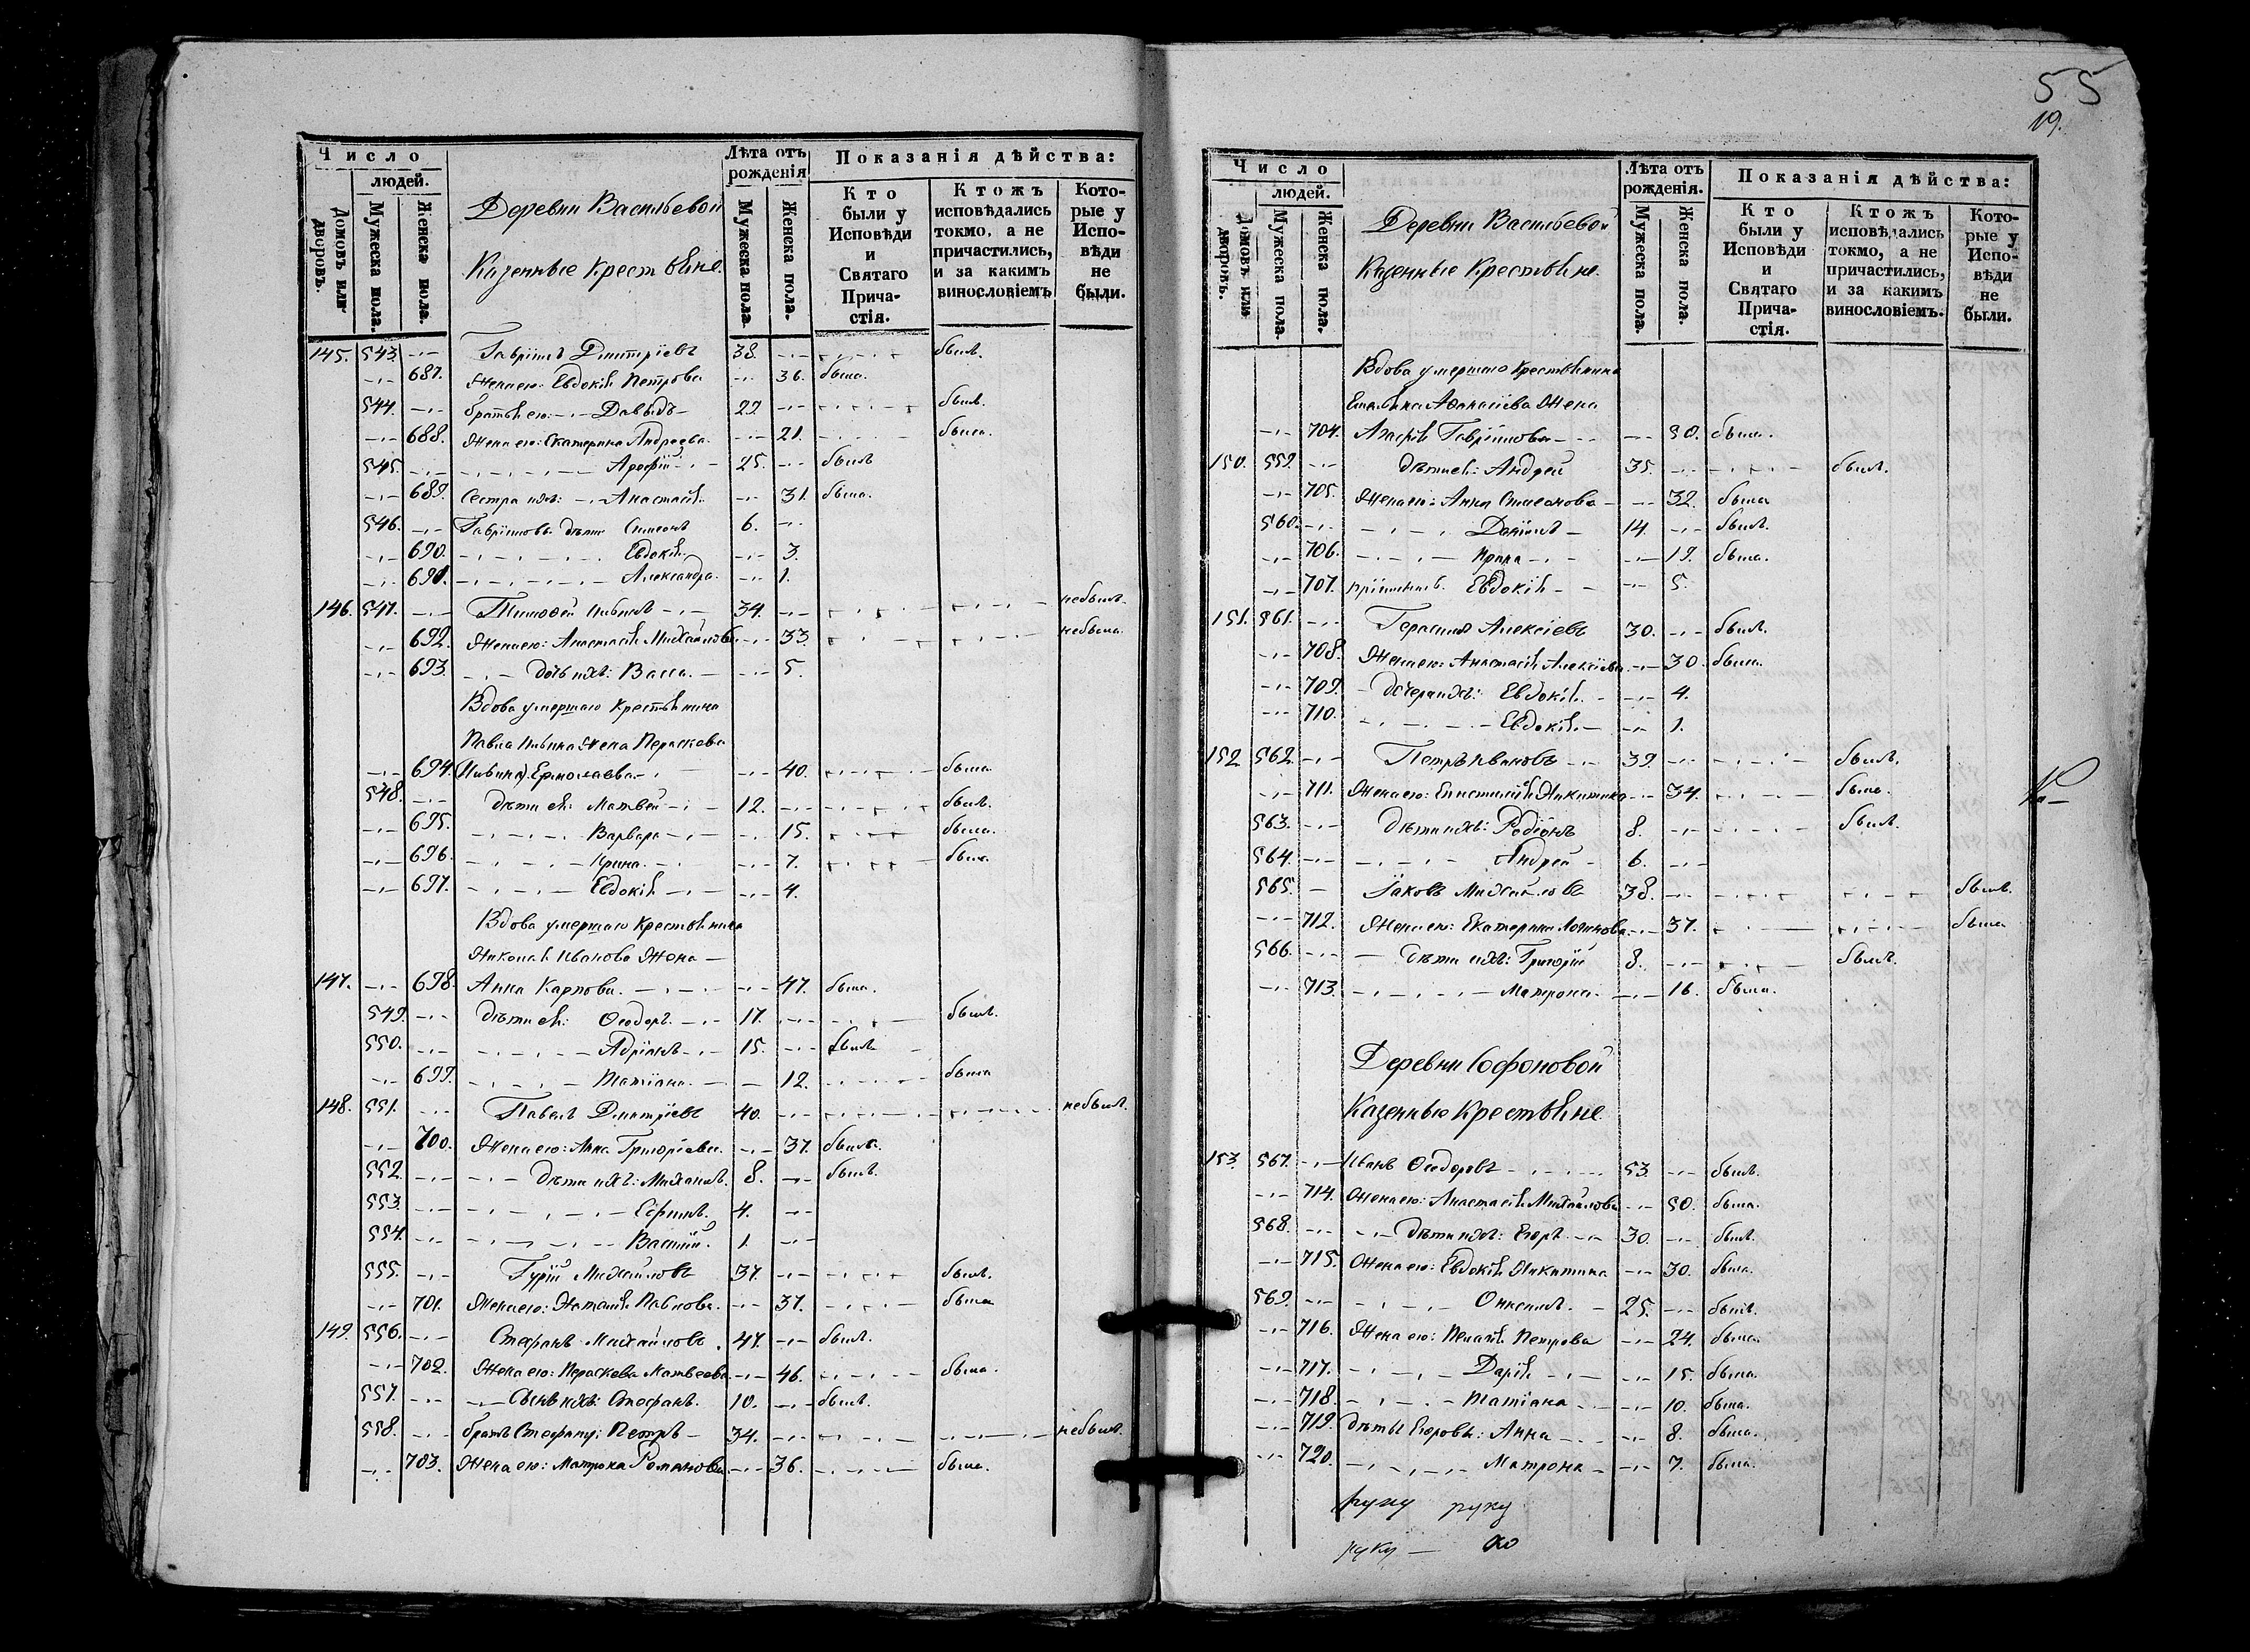 Число
людей.
Домовъ или дворовъ.
Мужеска пола.
Женска пола.
Деревни Васильевой
Казенные Крестьяне.
Лѣта отъ рожденія
Мужеска пола.
Женска пола.
Показанія дѣйства:
Кто были у Исповѣди и Святаго Причастія.
Ктожъ исповѣдались токмо, а не причастились, и за какимъ винословіемъ
Которые у Исповѣди не были.
145. 543. Гавріилъ Дмитріевъ 38. былъ.
687. Жена его: Евдокія Петрова 36. была.
544. братья его: Давыдъ 22 былъ.
688. Жена его: Екатерина Андреева. 21. была.
545. 25. былъ
689. Сестра ихъ: Анастасія. 31. была.
546. Гавріиловы дѣти Симеонъ 6.
690. Евдокія. 3.
691. Александра. 1.
146. 547. Тимоѳей 34. небылъ.
692. Жена его: Анастасія Михайлова 33. небыла.
693. дочь ихъ: Васса. 5.
Вдова умершаго Крестьянина
Павла Жена Параскева
694. Ермолаева 40. была.
548. Дѣти ея: Матвей 12. былъ.
695. Варвара 15. была.
696. Ирина. 7. была.
697. Евдокія 4.
Вдова умершаго Крестьянина
Николая Иванова Жена
147. 698. Анна Карпова. 47. была.
549. Дѣти ея: Ѳеодоръ. 17. былъ.
550. Адріанъ 15. былъ
699. Татіана. 12. была
148. 551. Павелъ Дмитріевъ 40. небылъ.
700. Жена его: Анна Григорьева. 37. была.
552. Дѣти ихъ: Михаилъ. 8. былъ.
553. Ефимъ. 4.
554. Василій. 1.
555. Гурій Михайловъ 37. былъ.
701. Жена его: Наталія Павлова. 37. была
149. 556. Стефанъ Михайловъ 47. былъ.
702. Жена его: Параскева Матвеева 46. была.
557. Сынъ ихъ: Стефанъ. 10. былъ.
558. братъ Стефану: Петръ 34. небылъ.
703. Жена его: Матрона Романова 36. была.
55
19.
Число
людей.
Домовъ или дворовъ.
Мужеска пола.
Женска пола.
Деревни Васильевой
Казенные Крестьяне.
Лѣта отъ рожденія.
Мужеска пола.
Женска пола.
Показанія дѣйства:
Кто были у Исповѣди и Святаго Причастія.
Ктожъ исповѣдались токмо, а не причастились, и за какимъ винословіемъ.
Которые у Исповѣди не были.
Вдова умершаго Крестьянина
Жена
704. Гавріилова 50. была.
150. 559. Дѣти ея: Андрей 35. былъ.
705. Жена его: Анна Симеонова 32. была
560. Даніилъ 14. былъ.
706. Ирина 19. была.
707. Евдокія 5.
151. 561. Герасимъ Алексіевъ 30. былъ.
708. Жена его: Анастасія Алексіева 30. была.
709. Дочери ихъ: Евдокія. 4.
710. Евдокія. 1.
152 562. Петръ Ивановъ 39. былъ.
711. Жена его: Никитина 34. была.
563. Дѣти ихъ: Родіонъ 8. былъ.
564. Андрей 6.
565. Іаковъ Михайловъ 38. былъ.
712. Жена его: Екатерина Логинова 37. была
566. Дѣти ихъ: Григорій 8. былъ.
713. Матрона. 16. была.
Деревни Софоновой
Казенные Крестьяне.
153. 567. Иванъ Ѳеодоровъ 53. былъ.
714. Жена его: Анастасія Михайлова 50. была.
568. Дѣти ихъ: Егоръ 30. былъ.
715. Жена его: Евдокія Никитина 30. была.
569. Онисимъ. 25. былъ.
716. Жена его: Пелагія Петрова 24. была.
717. Дарія 15. была.
718. Татіана 10. была.
719. Дѣти Егоровы: Анна 8. была.
720. Матрона 7. была.
руку руку
руку